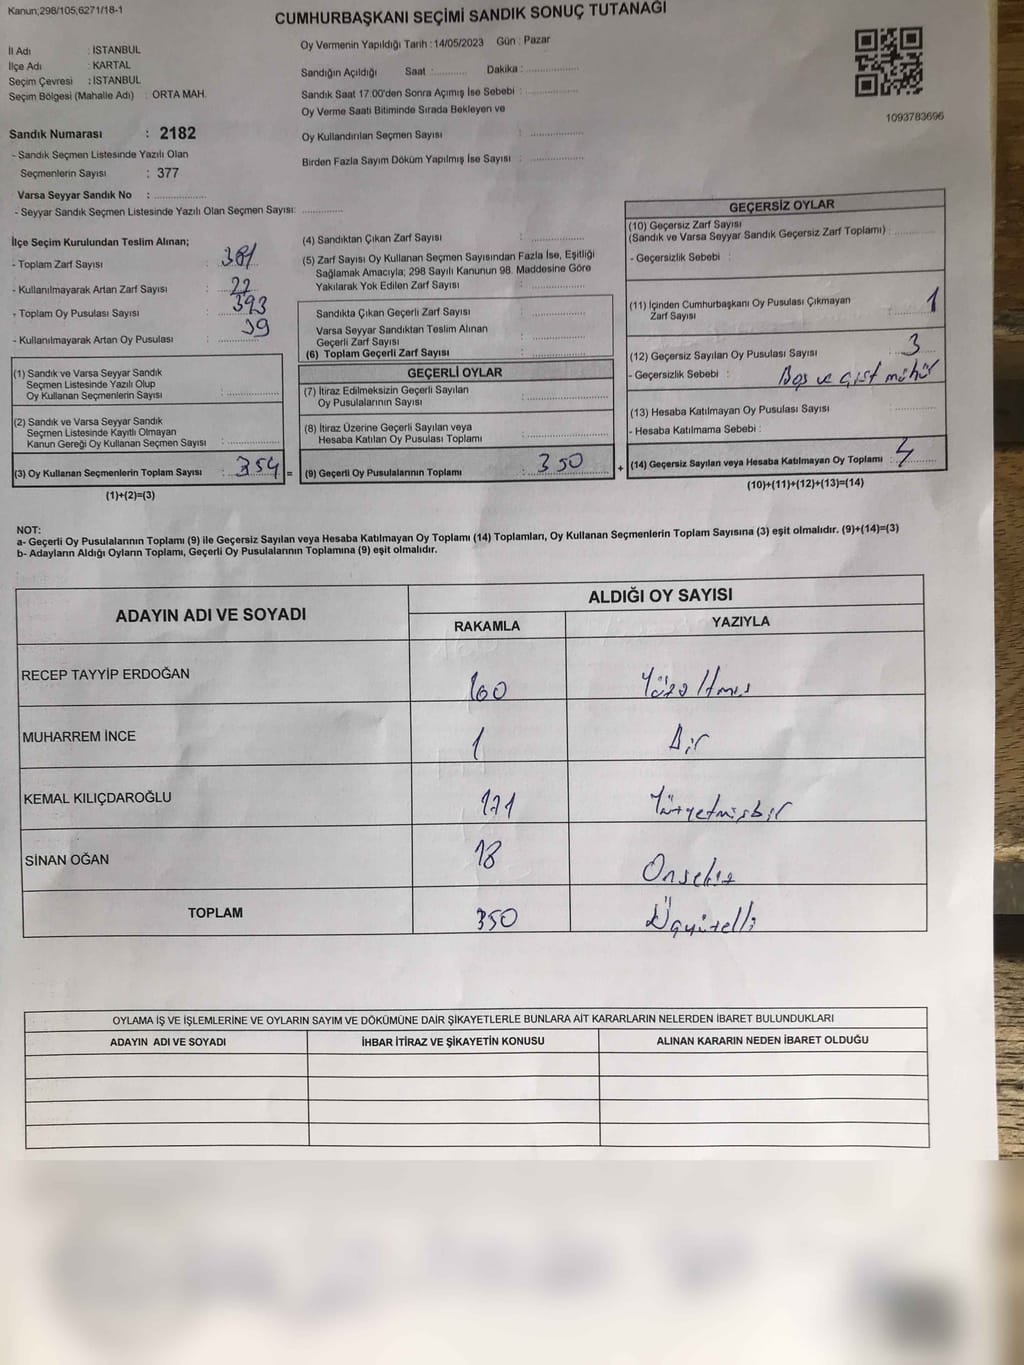 Kanun;298/105,6271/18-1
CUMHURBAŞKANI SEÇİMİ SANDIK SONUÇ TUTANAĞI
İl Adı : İSTANBUL
İlçe Adı : KARTAL
Seçim Çevresi : İSTANBUL
Seçim Bölgesi (Mahalle Adı) : ORTA MAH.
Sandık Numarası : 2182
- Sandık Seçmen Listesinde Yazılı Olan
Seçmenlerin Sayısı : 377
Varsa Seyyar Sandık No : ............
- Seyyar Sandık Seçmen Listesinde Yazılı Olan Seçmen Sayısı: ............
Oy Vermenin Yapıldığı Tarih : 14/05/2023 Gün : Pazar
Sandığın Açıldığı Saat : ............ Dakika : ............
Sandık Saat 17.00'den Sonra Açımış İse Sebebi : ............
Oy Verme Saati Bitiminde Sırada Bekleyen ve
Oy Kullandırılan Seçmen Sayısı : ............
Birden Fazla Sayım Döküm Yapılmış İse Sayısı : ............
1093783696
İlçe Seçim Kurulundan Teslim Alınan;
- Toplam Zarf Sayısı : 381
- Kullanılmayarak Artan Zarf Sayısı : 22
- Toplam Oy Pusulası Sayısı : 393
- Kullanılmayarak Artan Oy Pusulası : 39
(1) Sandık ve Varsa Seyyar Sandık
Seçmen Listesinde Yazılı Olup
Oy Kullanan Seçmenlerin Sayısı : ............
(2) Sandık ve Varsa Seyyar Sandık
Seçmen Listesinde Kayıtlı Olmayan
Kanun Gereği Oy Kullanan Seçmen Sayısı : ............
(3) Oy Kullanan Seçmenlerin Toplam Sayısı : 354 =
(1)+(2)=(3)
(4) Sandıktan Çıkan Zarf Sayısı : ............
(5) Zarf Sayısı Oy Kullanan Seçmen Sayısından Fazla İse, Eşitliği
Sağlamak Amacıyla; 298 Sayılı Kanunun 98. Maddesine Göre
Yakılarak Yok Edilen Zarf Sayısı : ............
Sandıkta Çıkan Geçerli Zarf Sayısı : ............
Varsa Seyyar Sandıktan Teslim Alınan
Geçerli Zarf Sayısı : ............
(6) Toplam Geçerli Zarf Sayısı : ............
GEÇERLİ OYLAR
(7) İtiraz Edilmeksizin Geçerli Sayılan
Oy Pusulalarının Sayısı : ............
(8) İtiraz Üzerine Geçerli Sayılan veya
Hesaba Katılan Oy Pusulası Toplamı : ............
(9) Geçerli Oy Pusulalarının Toplamı : 350 +
GEÇERSİZ OYLAR
(10) Geçersiz Zarf Sayısı
(Sandık ve Varsa Seyyar Sandık Geçersiz Zarf Toplamı) : ............
- Geçersizlik Sebebi :
(11) İçinden Cumhurbaşkanı Oy Pusulası Çıkmayan
Zarf Sayısı : 1
(12) Geçersiz Sayılan Oy Pusulası Sayısı : 3
- Geçersizlik Sebebi : Boş ve çift mühür
(13) Hesaba Katılmayan Oy Pusulası Sayısı : ............
- Hesaba Katılmama Sebebi :
(14) Geçersiz Sayılan veya Hesaba Katılmayan Oy Toplamı : 4
(10)+(11)+(12)+(13)=(14)
NOT:
a- Geçerli Oy Pusulalarının Toplamı (9) ile Geçersiz Sayılan veya Hesaba Katılmayan Oy Toplamı (14) Toplamları, Oy Kullanan Seçmenlerin Toplam Sayısına (3) eşit olmalıdır. (9)+(14)=(3)
b- Adayların Aldığı Oyların Toplamı, Geçerli Oy Pusulalarının Toplamına (9) eşit olmalıdır.
ADAYIN ADI VE SOYADI ALDIĞI OY SAYISI
RAKAMLA YAZIYLA
RECEP TAYYİP ERDOĞAN 160 Yüzaltmış
MUHARREM İNCE 1 Bir
KEMAL KILIÇDAROĞLU 171 Yüzyetmişbir
SİNAN OĞAN 18 Onsekiz
TOPLAM 350 Üçyüzelli
OYLAMA İŞ VE İŞLEMLERİNE VE OYLARIN SAYIM VE DÖKÜMÜNE DAİR ŞİKAYETLERLE BUNLARA AİT KARARLARIN NELERDEN İBARET BULUNDUKLARI
ADAYIN ADI VE SOYADI İHBAR İTİRAZ VE ŞİKAYETİN KONUSU ALINAN KARARIN NEDEN İBARET OLDUĞU